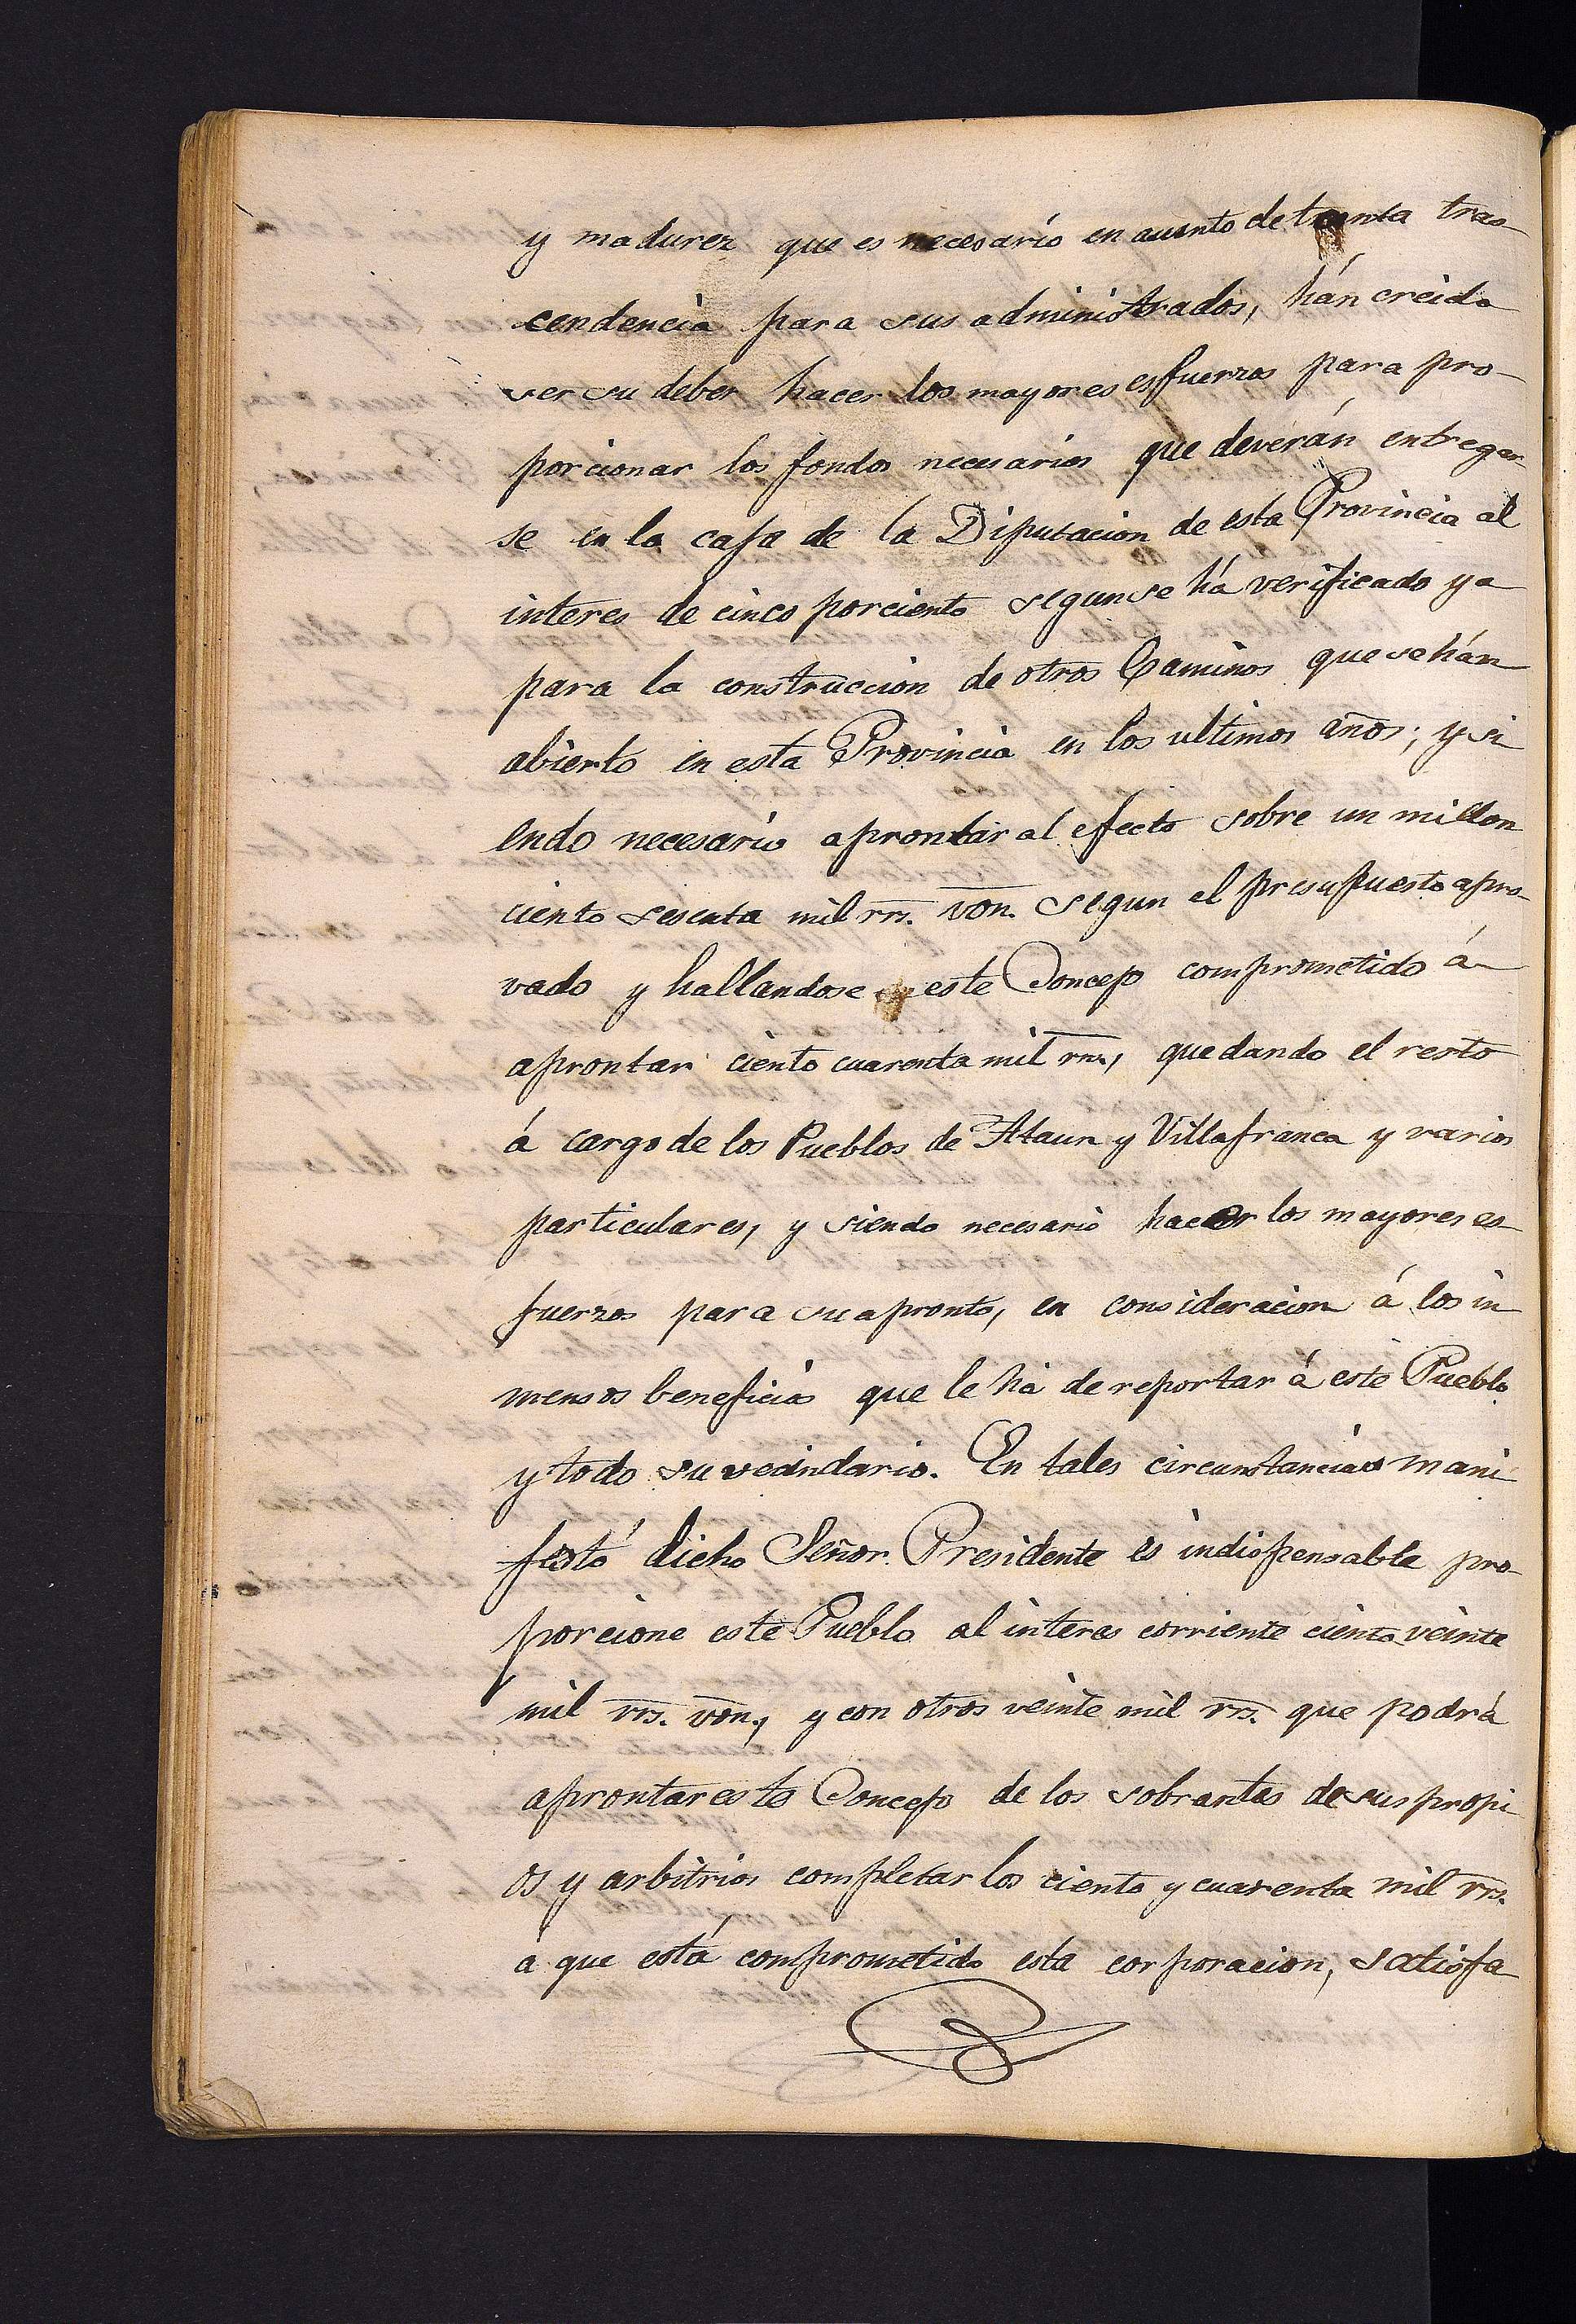 y madurez que es necesario en asunto de tanta tras-
cendencia para sus administrados, hán creido
ser su deber hacer los mayores esfuerzos para pro-
porcionar los fondos necesarios que deverán entregar-
se en la caja de la Diputacion de esta Provincia al
interes de cinco por ciento segun se há verificado ya
para la construccion de otros Caminos que se hán
abierto en esta Provincia en los ultimos años; y si
endo necesario aprontar al efecto sobre un millon
ciento sesenta mil rrs. von. segun el presupuesto apro-
vado y hallandose este Concejo comprometido á
aprontar ciento cuarenta mil rrs., quedando el resto
á cargo de los Pueblos de Ataun y Villafranca y varios
particulares, y siendo necesario hacer los mayores es
fuerzos para su apronto, en consideracion á los in
mensos beneficios que le há de reportar á este Pueblo
y todo su vecindario. En tales circunstancias mani
festó dicho Señor Presidente es indispensable pro-
porcione este Pueblo al interes corriente ciento veinte
mil rrs. von., y con otros veinte mil rrs. que podrá
aprontar este Concejo de los sobrantes de sus propi
os y arbitrios completar los ciento y cuarenta mil rrs.
á que está comprometido esta corporacion, satisfa